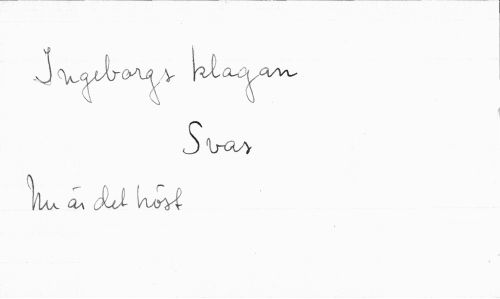 Ingeborgs klagan
Svar
Nu är det höst